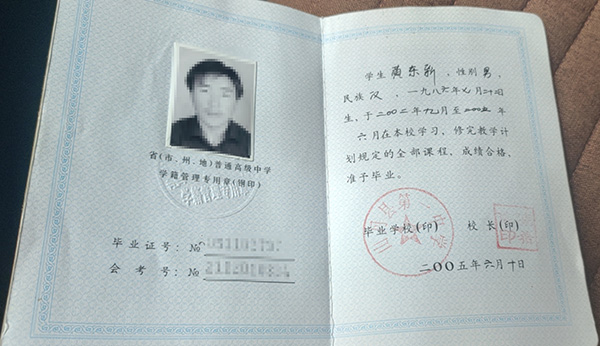 省(市、州、地)普通高级中学
学籍管理专用章(钢印)
毕业证号:№
会考号:№
学生黄东新,性别男,
民族汉,一九八六年七月二十四日
生,于二〇〇二年九月至二〇〇五年
六月在本校学习,修完教学计
划规定的全部课程,成绩合格,
准予毕业。
毕业学校(印) 校长(印)
二〇〇五年六月十日